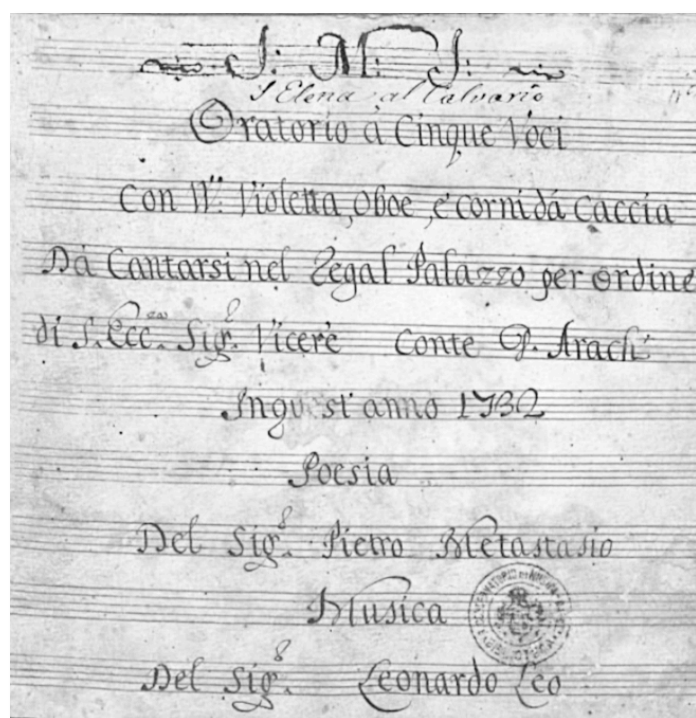 J: M: J:
S Elena al Calvario
Oratorio à Cinque Voci
Con VV. Violetta, Oboe, è corni dà Caccia
Dà Cantarsi nel Regal Palazzo per ordine
di S. Ecc.za Sig.r Vicerè Conte D. Arach
In quest'anno 1732
Poesia
Del Sig.r Pietro Metastasio
Musica
Del Sig.r Leonardo Leo